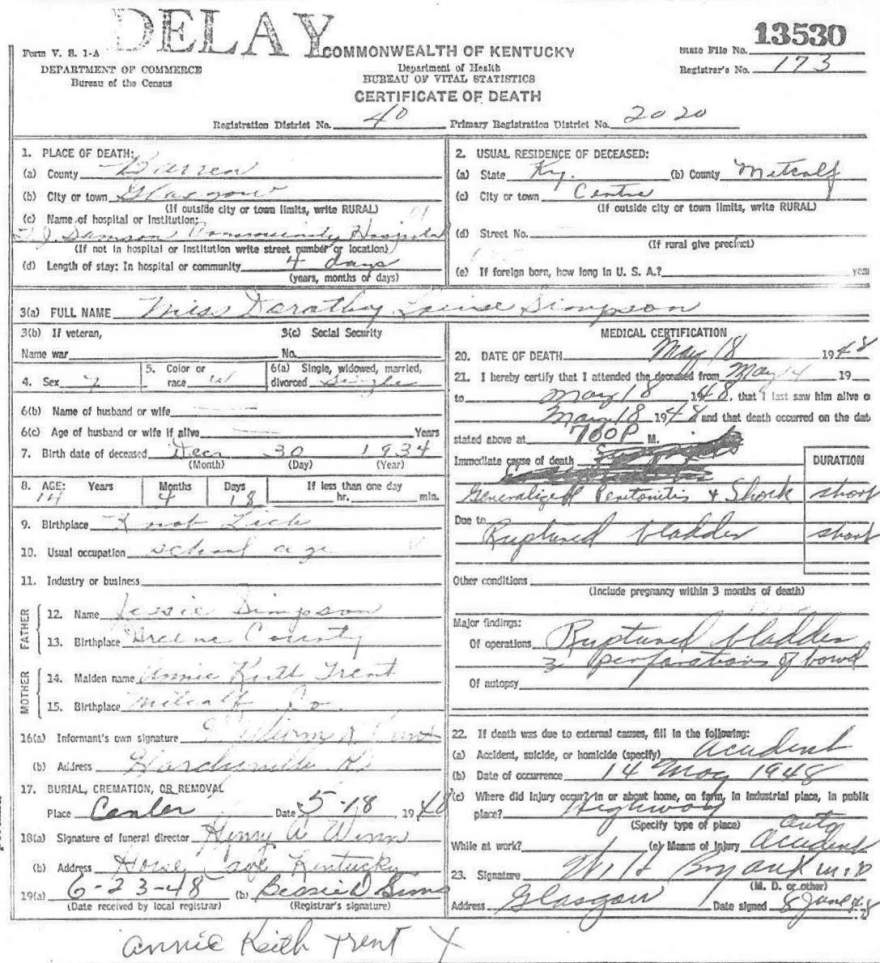 DELAY
Form V. S. 1-A
DEPARTMENT OF COMMERCE
Bureau of the Census
COMMONWEALTH OF KENTUCKY
Department of Health
BUREAU OF VITAL STATISTICS
CERTIFICATE OF DEATH
State File No. 13530
Registrar's No. 173
Registration District No. 40 Primary Registration District No. 2020
1. PLACE OF DEATH:
(a) County Barren
(b) City or town Glasgow
(If outside city or town limits, write RURAL)
(c) Name of hospital or institution:
T J Samson Community Hospital
(If not in hospital or institution write street number or location)
(d) Length of stay: In hospital or community 4 days
(years, months or days)
2. USUAL RESIDENCE OF DECEASED:
(a) State Ky. (b) County Metcalf
(c) City or town Centre
(If outside city or town limits, write RURAL)
(d) Street No.
(If rural give precinct)
(e) If foreign born, how long in U. S. A.? years
3(a) FULL NAME Miss Dorathy Louise Simpson
3(b) If veteran,
Name war
3(c) Social Security
No.
4. Sex
5. Color or race W
6(a) Single, widowed, married, divorced Single
6(b) Name of husband or wife
6(c) Age of husband or wife if alive Years
7. Birth date of deceased Dec 30 1934
(Month) (Day) (Year)
8. AGE: Years Months Days If less than one day
14 4 18 hr. min.
9. Birthplace Knob Lick
10. Usual occupation school age
11. Industry or business
FATHER
12. Name Jessie Simpson
13. Birthplace Greene County
MOTHER
14. Maiden name Annie Keith Trent
15. Birthplace Metcalf Co.
16(a) Informant's own signature
(b) Address Hardyville
17. BURIAL, CREMATION, OR REMOVAL
Place Center Date 5-18 1948
18(a) Signature of funeral director Henry A Winn
(b) Address Horse Cave Kentucky
19(a) 6-23-48 (b) Bessie D Sims
(Date received by local registrar) (Registrar's signature)
MEDICAL CERTIFICATION
20. DATE OF DEATH May 18 1948
21. I hereby certify that I attended the deceased from May 14 19
to May 18 1948, that I last saw him alive o
May 18 1948 and that death occurred on the dat
stated above at 700 P M.
Immediate cause of death
DURATION
Generalized Peritonitis & Shock short
Due to
Ruptured bladder short
Other conditions
(Include pregnancy within 3 months of death)
Major findings:
Of operations Ruptured bladder
3 perforations of bowel
Of autopsy
22. If death was due to external causes, fill in the following:
(a) Accident, suicide, or homicide (specify) Accident
(b) Date of occurrence 14 May 1948
(c) Where did injury occur? in or about home, on farm, in industrial place, in public
place? Highway
(Specify type of place)
While at work? (e) Means of injury auto Accident
23. Signature Bryant M.D
(M. D. or other)
Address Glasgow Date signed 8 June 48
Annie Keith Trent X